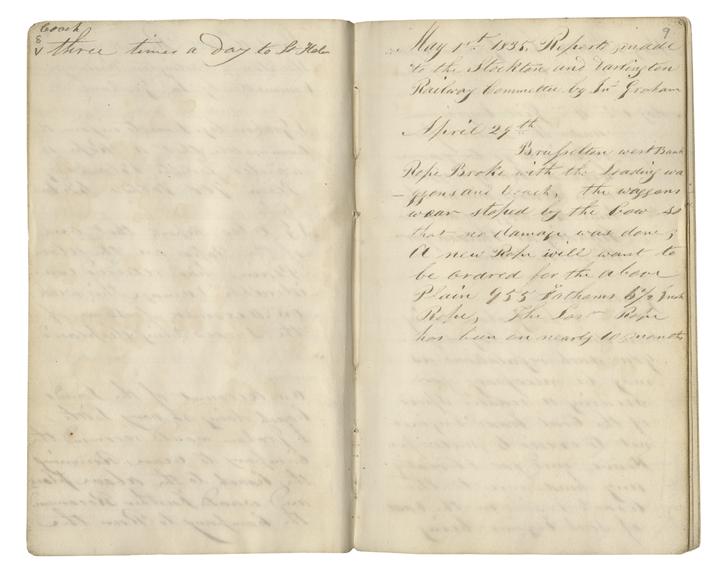 Coach
8
V three times a Day to St Helen
9
May 1st 1835. Report, made
to the Stockton and Darlington
Railway Committee by Jno Graham
April 29th
Brusselton west Bank
Rope Broke with the Leading wa
- ggons and Coach, the waggons
wear stoped by the Cow so
that no damage was done,
A new Rope will want to
be ordred for the above
Plain 955 Fathoms 6 1/2 Inch
Rope, The Last Rope
has been on nearly 10 months